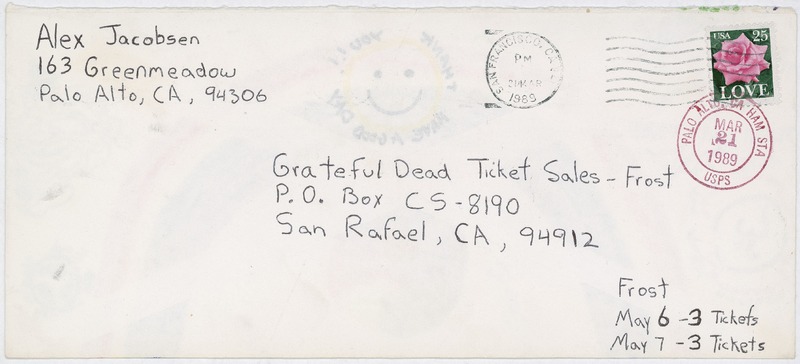 Alex Jacobsen
163 Greenmeadow
Palo Alto, CA, 94306
SAN FRANCISCO, CA
PM
21 MAR
1989
USA 25
LOVE
PALO ALTO, CA HAM STA
MAR
21
1989
USPS
THANK YOU!!
HAVE A GOOD DAY
Grateful Dead Ticket Sales - Frost
P.O. Box CS-8190
San Rafael, CA, 94912
Frost
May 6 - 3 Tickets
May 7 - 3 Tickets